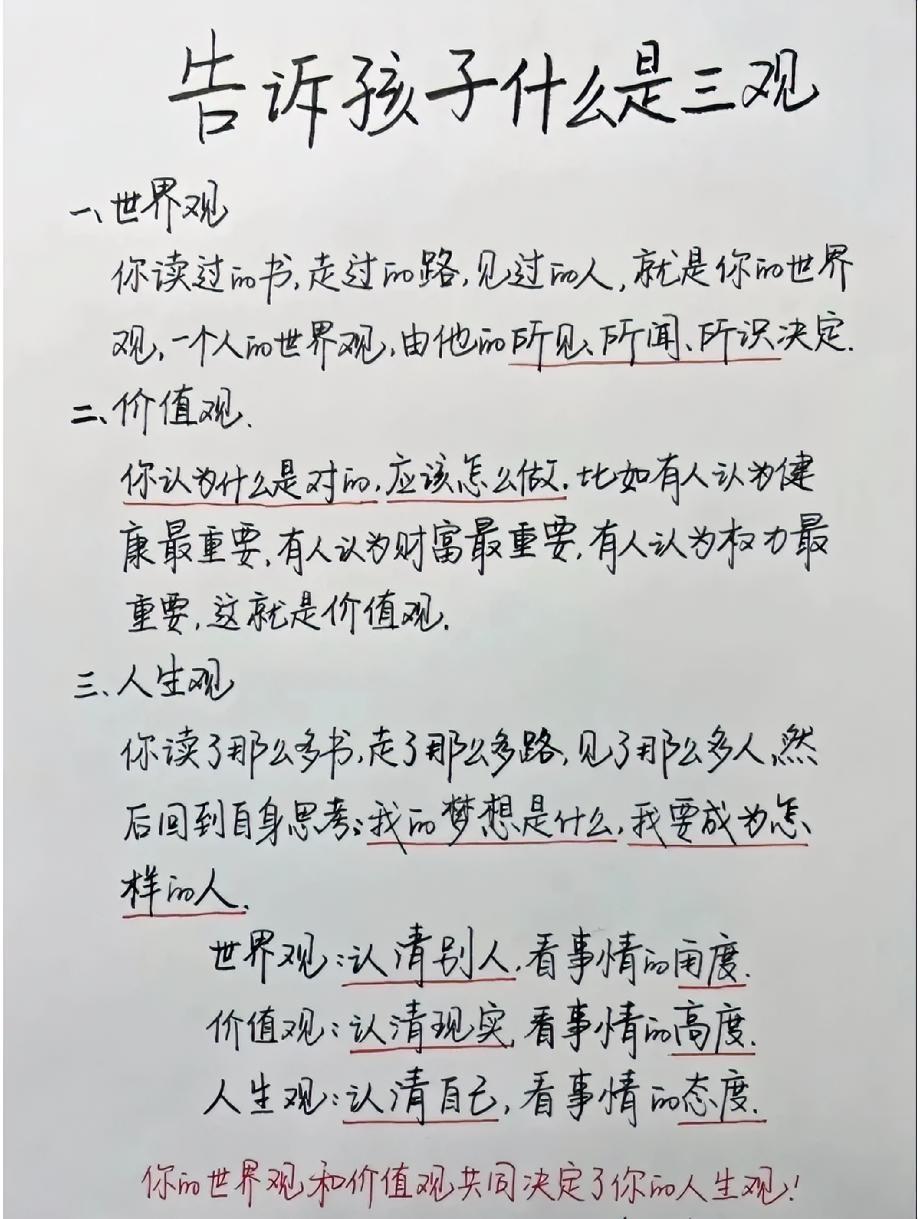 告诉孩子什么是三观
一、世界观
你读过的书,走过的路,见过的人,就是你的世界
观,一个人的世界观,由他的所见、所闻、所识决定.
二、价值观.
你认为什么是对的,应该怎么做.比如有人认为健
康最重要,有人认为财富最重要,有人认为权力最
重要,这就是价值观.
三、人生观
你读了那么多书,走了那么多路,见了那么多人,然
后回到自身思考:我的梦想是什么,我要成为怎
样的人.
世界观:认清别人,看事情的角度.
价值观:认清现实,看事情的高度.
人生观:认清自己,看事情的态度.
你的世界观和价值观共同决定了你的人生观!